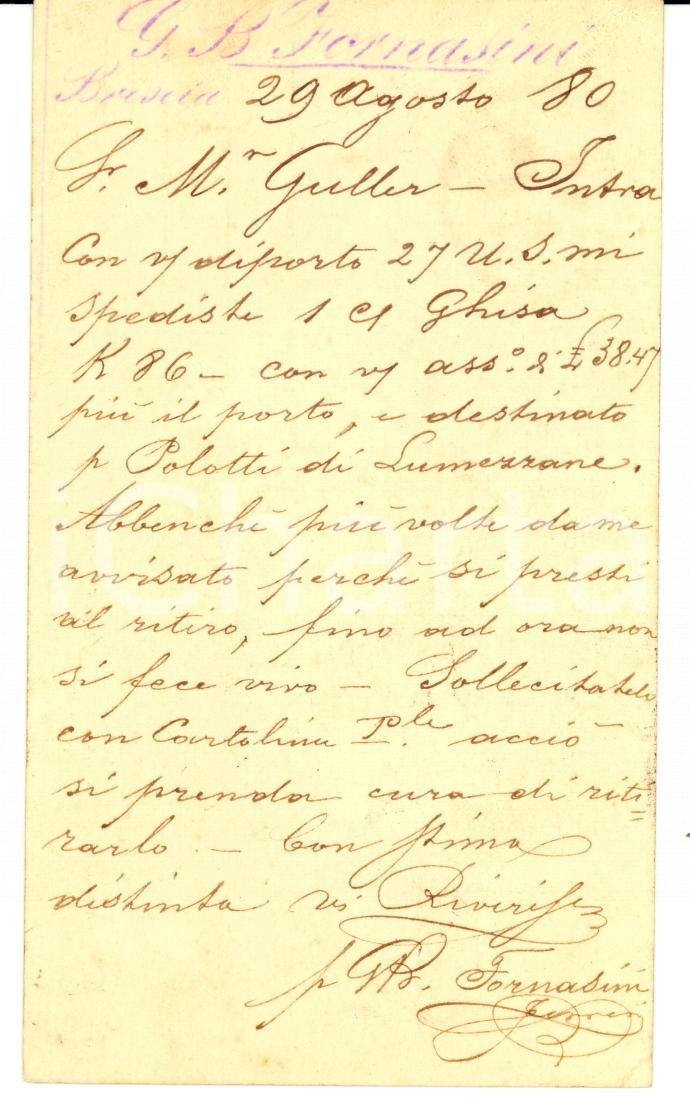 G. B. Fornasini
Brescia 29 Agosto 80
Sr. M.r Guller — Intra
Con vs/ diporto 27 U. S. mi
spediste 1 C/ Ghisa
K 86 — con vs/ ass.o di £ 38.47
più il porto, e destinato
p Polotti di Lumezzane.
Abbenchè più volte da me
avvisato perchè si presti
al ritiro, fino ad ora non
si fece vivo — Sollecitatelo
con Cartolina P.le acciò
si prenda cura di riti=
rarlo. — Con stima
distinta vi Riverisco
p GB. Fornasini